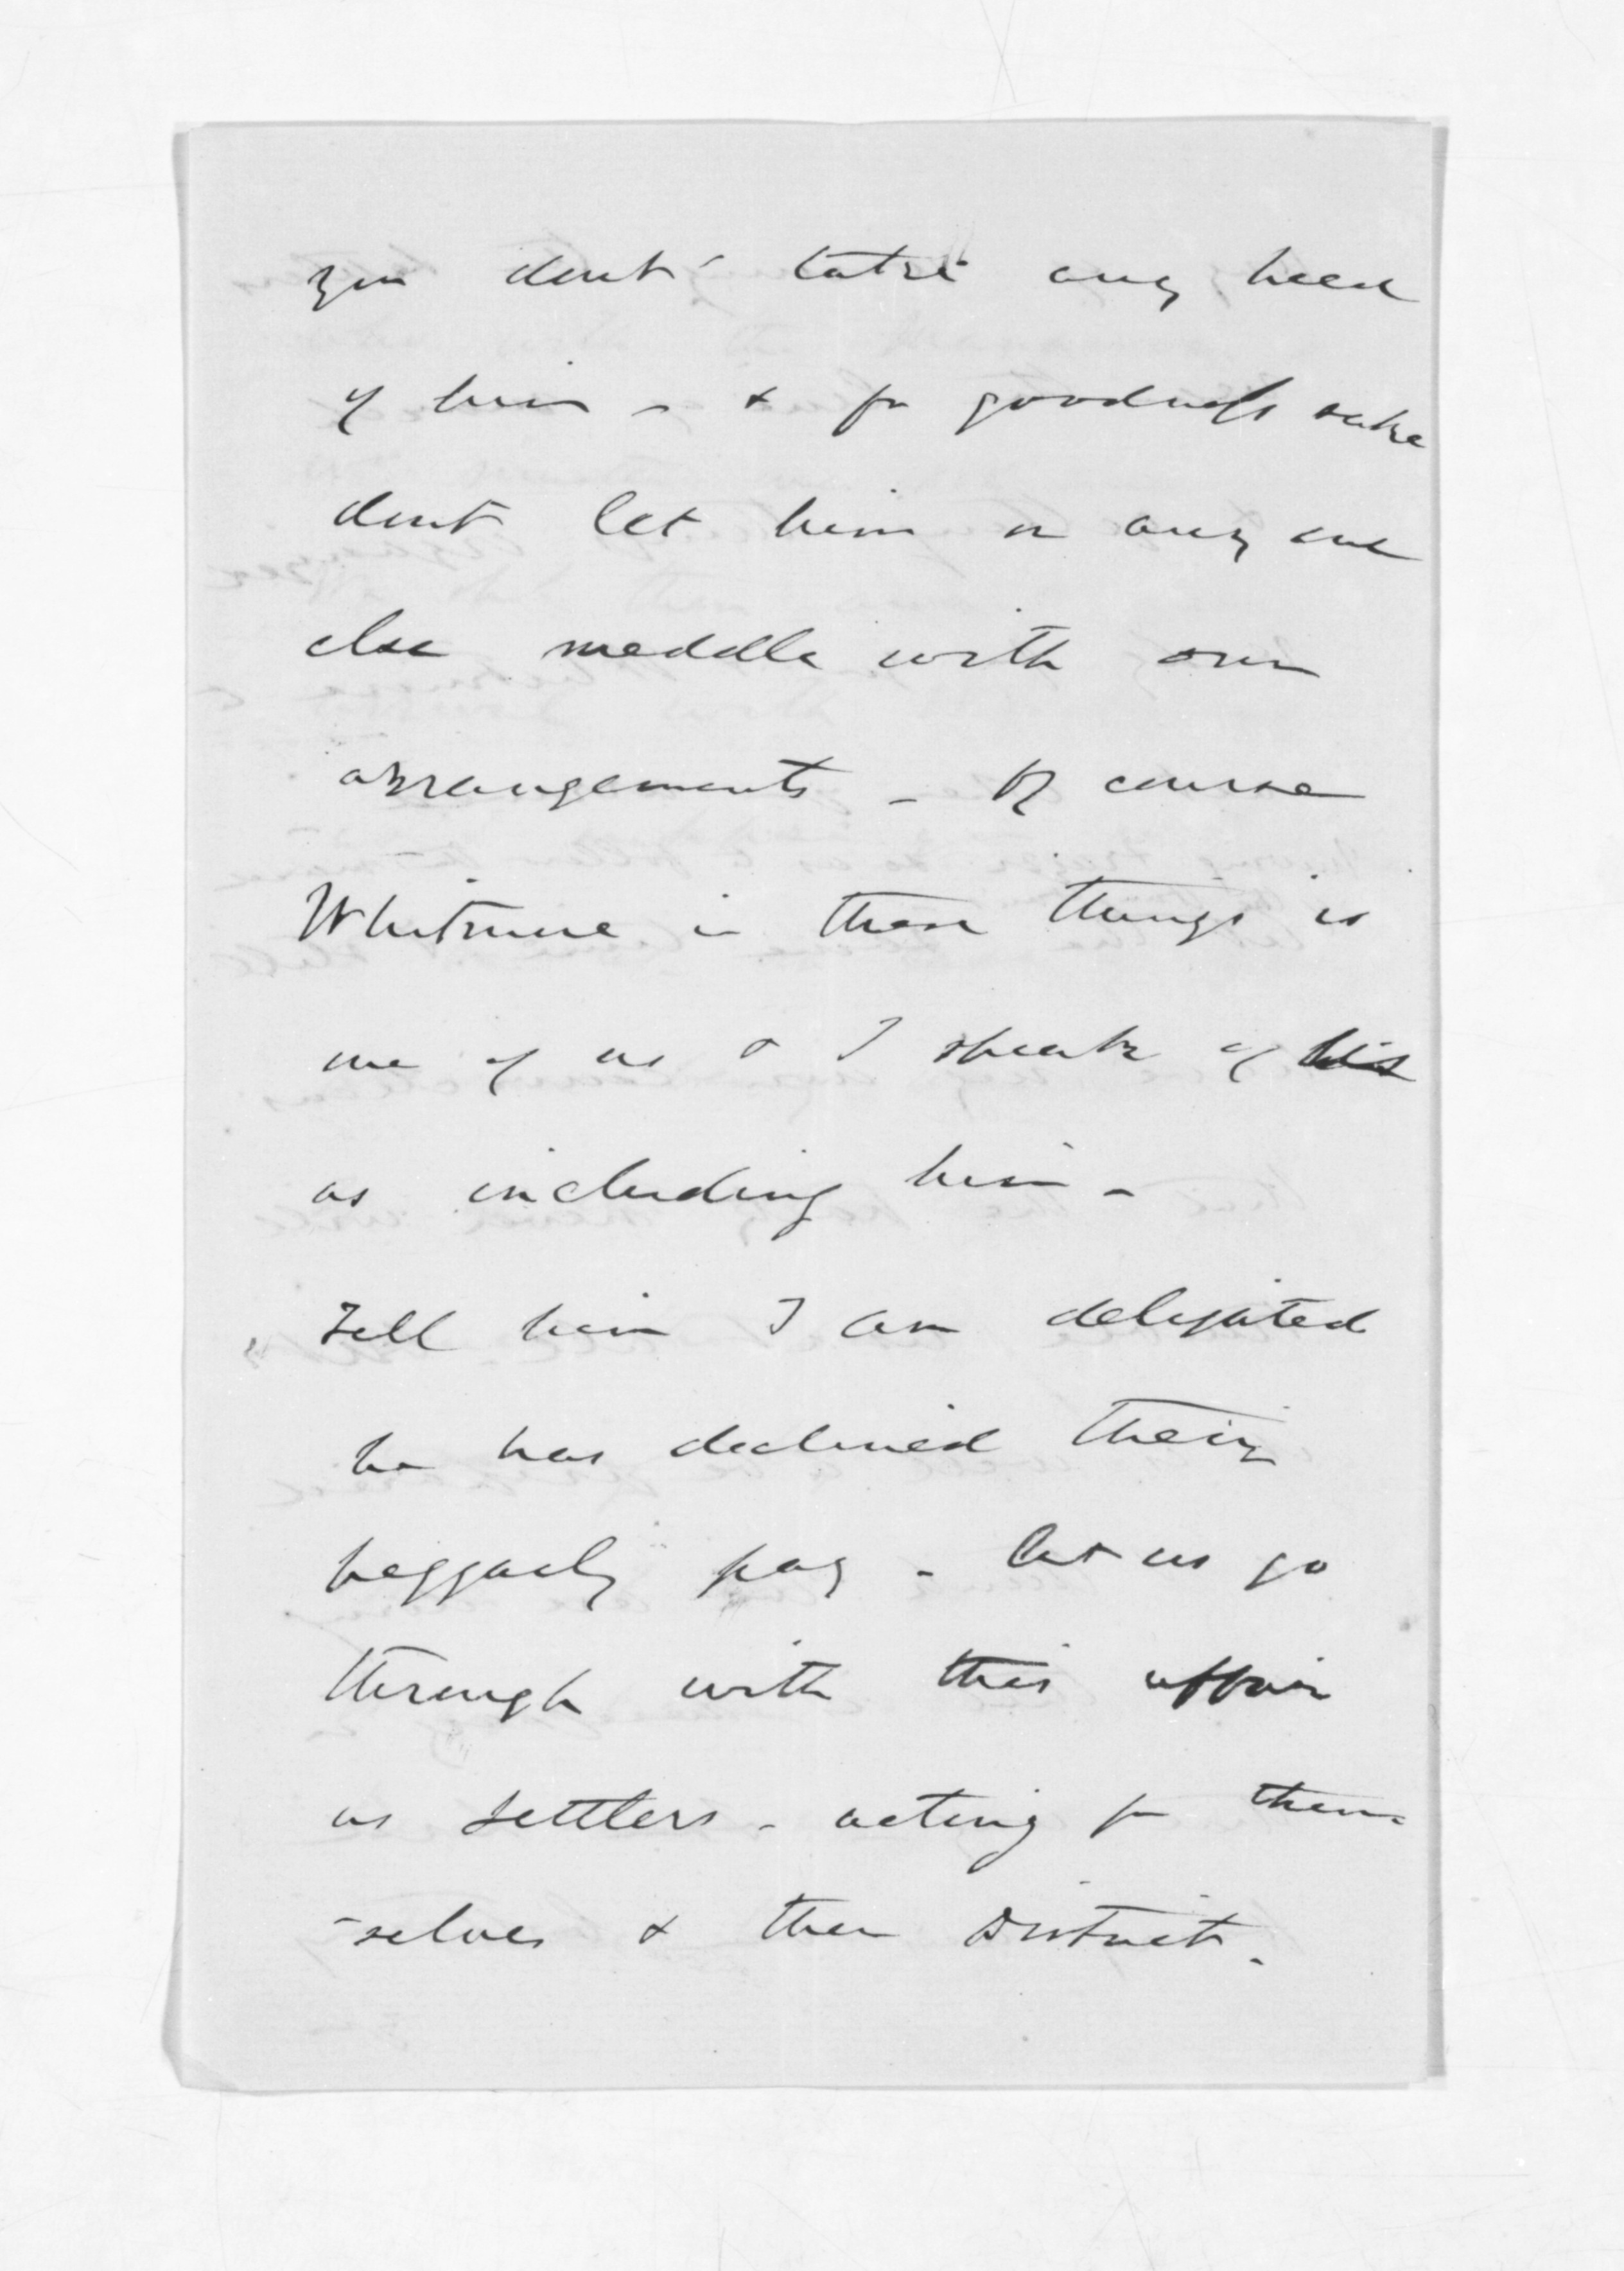 you dont take any heed
of him - & for goodness sake
dont let him or any one
else meddle with our
arrangements - Of course
Whitmore in these things is
one of us & I speak of us
as including him -
Tell him I am delighted
he has declined their
beggarly pay - let us go
through with this affair
as settlers - acting for them-
-selves & their District.